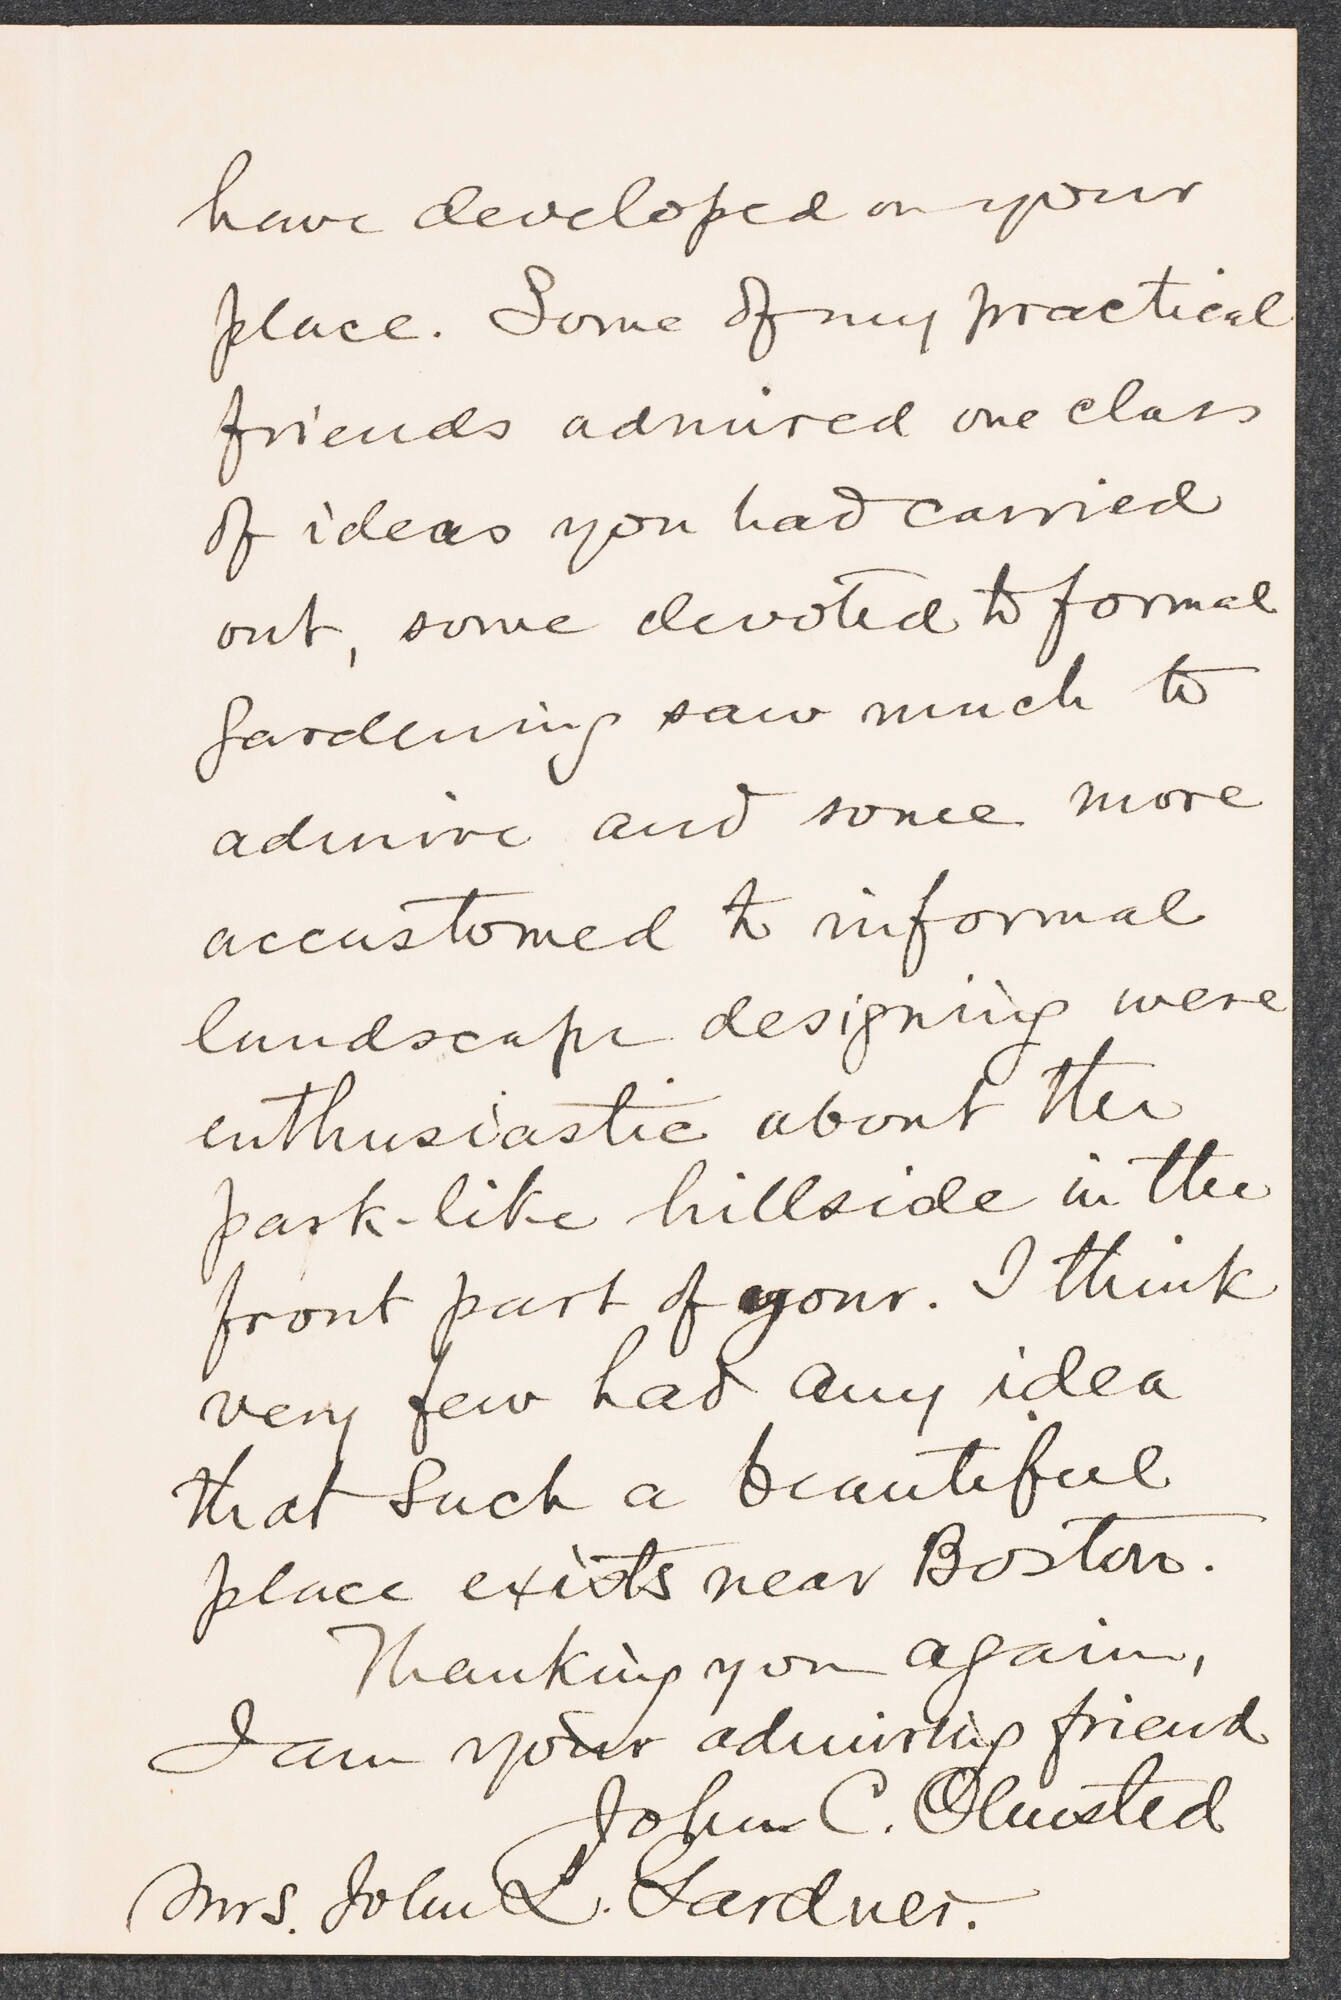 have developed on your
place. Some of my practical
friends admired one class
of ideas you had carried
out, some devoted to formal
gardening saw much to
admire and some more
accustomed to informal
landscape designing were
enthusiastic about the
park-like hillside in the
front part of your. I think
very few had any idea
that such a beautiful
place exists near Boston.
Thanking you again,
I am your admiring friend
John C. Olmsted
Mrs. John L. Gardner.